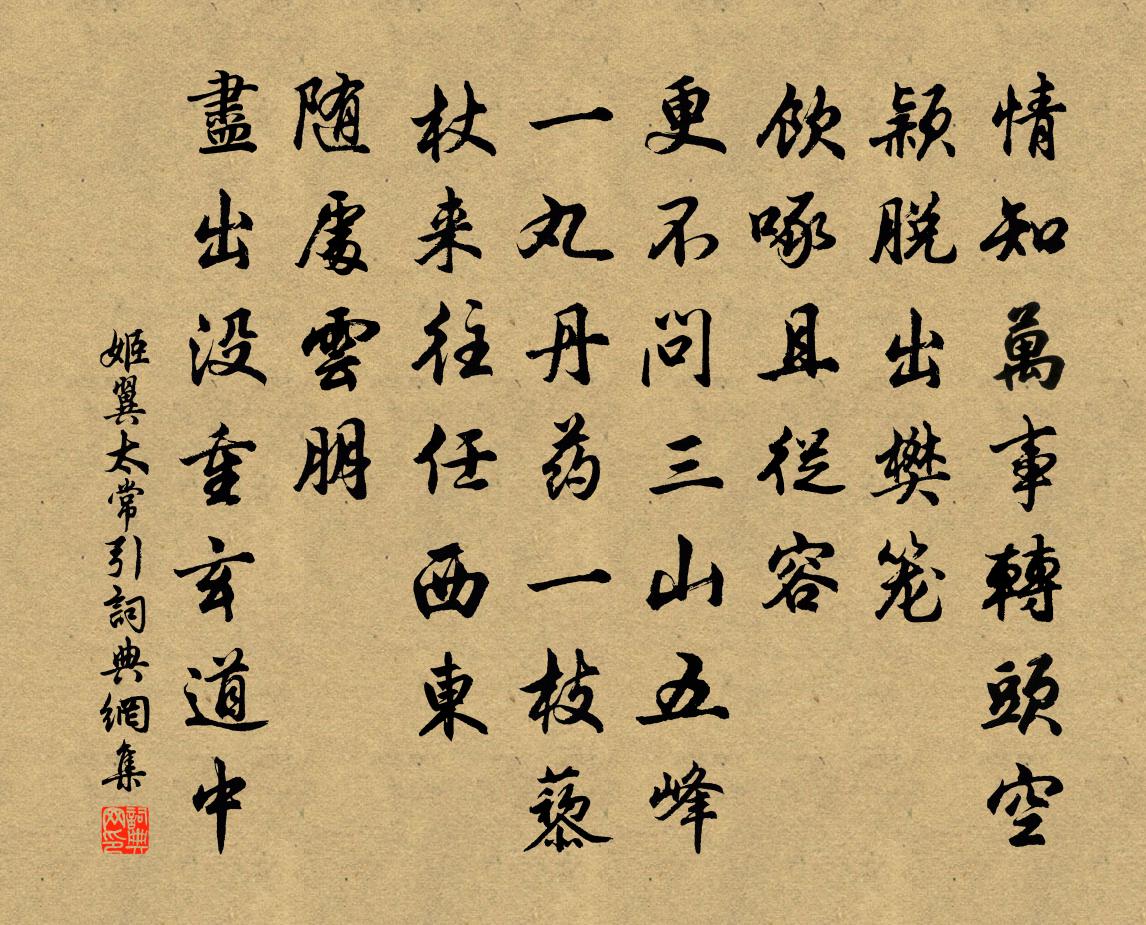 情知萬事轉頭空
穎脱出樊笼
飲啄且從容
更不問三山五峰
一丸丹药一枝藜
杖来往任西東
随處雲朋
盡出没重玄道中
姬翼太常引詞典網集
詞典网印